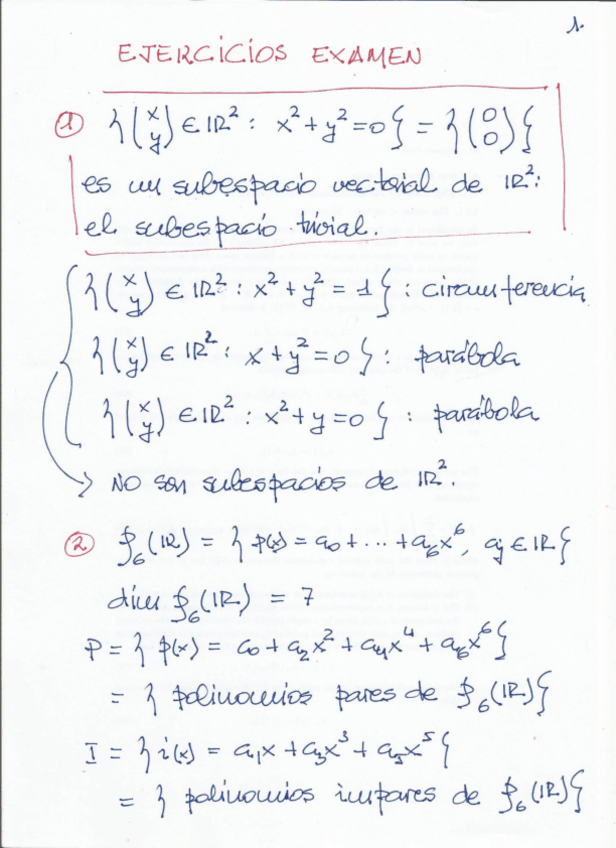 1.
EJERCICIOS EXAMEN
① {(x y) ∈ ℝ² : x² + y² = 0} = {(0 0)}
es un subespacio vectorial de ℝ²:
el subespacio trivial.
{(x y) ∈ ℝ² : x² + y² = 1} : circunferencia
{(x y) ∈ ℝ² : x + y² = 0} : parábola
{(x y) ∈ ℝ² : x² + y = 0} : parábola
→ NO son subespacios de ℝ².
② 𝒫₆(ℝ) = { p(x) = a₀ + ... + a₆x⁶, aⱼ ∈ ℝ}
dim 𝒫₆(ℝ) = 7
P = { p(x) = a₀ + a₂x² + a₄x⁴ + a₆x⁶}
= { polinomios pares de 𝒫₆(ℝ)}
I = { i(x) = a₁x + a₃x³ + a₅x⁵}
= { polinomios impares de 𝒫₆(ℝ)}